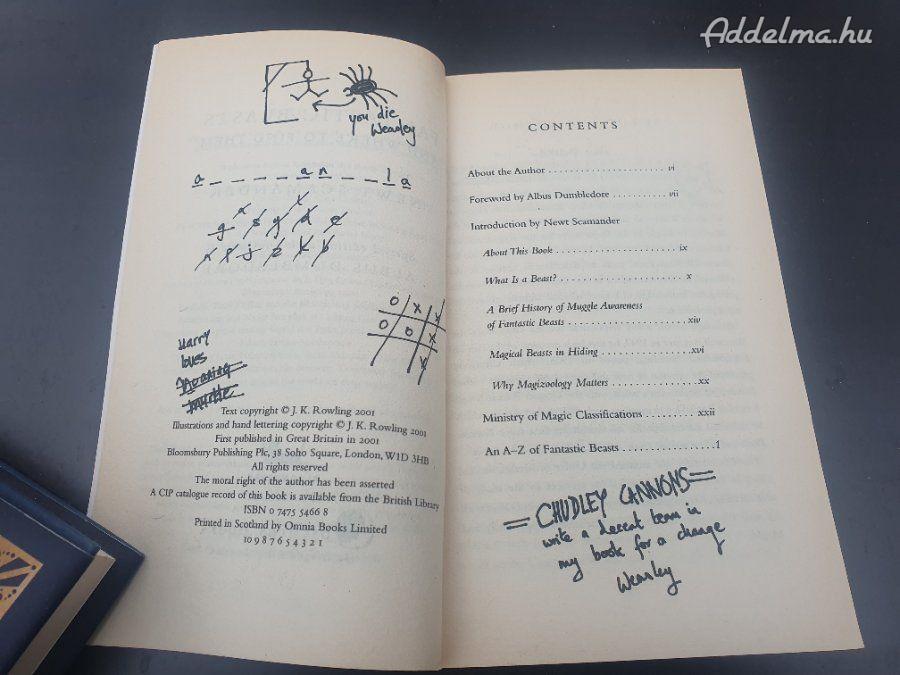 Addelma.hu
you die
Weasley
a _ _ _ _ _ a n _ _ _ l a
O X X
O O X
X
Harry
loves
Moaning
Myrtle
Text copyright © J. K. Rowling 2001
Illustrations and hand lettering copyright © J. K. Rowling 2001
First published in Great Britain in 2001
Bloomsbury Publishing Plc, 38 Soho Square, London, W1D 3HB
All rights reserved
The moral right of the author has been asserted
A CIP catalogue record of this book is available from the British Library
ISBN 0 7475 5466 8
Printed in Scotland by Omnia Books Limited
10 9 8 7 6 5 4 3 2 1
CONTENTS
About the Author . . . . . . . . . . . . . . . . . . . . . vi
Foreword by Albus Dumbledore . . . . . . . . . . . vii
Introduction by Newt Scamander
About This Book . . . . . . . . . . . . . . . . . . . . ix
What Is a Beast? . . . . . . . . . . . . . . . . . . . . x
A Brief History of Muggle Awareness
of Fantastic Beasts . . . . . . . . . . . . . . . . . . . xiv
Magical Beasts in Hiding . . . . . . . . . . . . . . xvi
Why Magizoology Matters . . . . . . . . . . . . . xx
Ministry of Magic Classifications . . . . . . . . . xxii
An A–Z of Fantastic Beasts . . . . . . . . . . . . . . . 1
= CHUDLEY CANNONS =
write a decent team in
my book for a change
Weasley